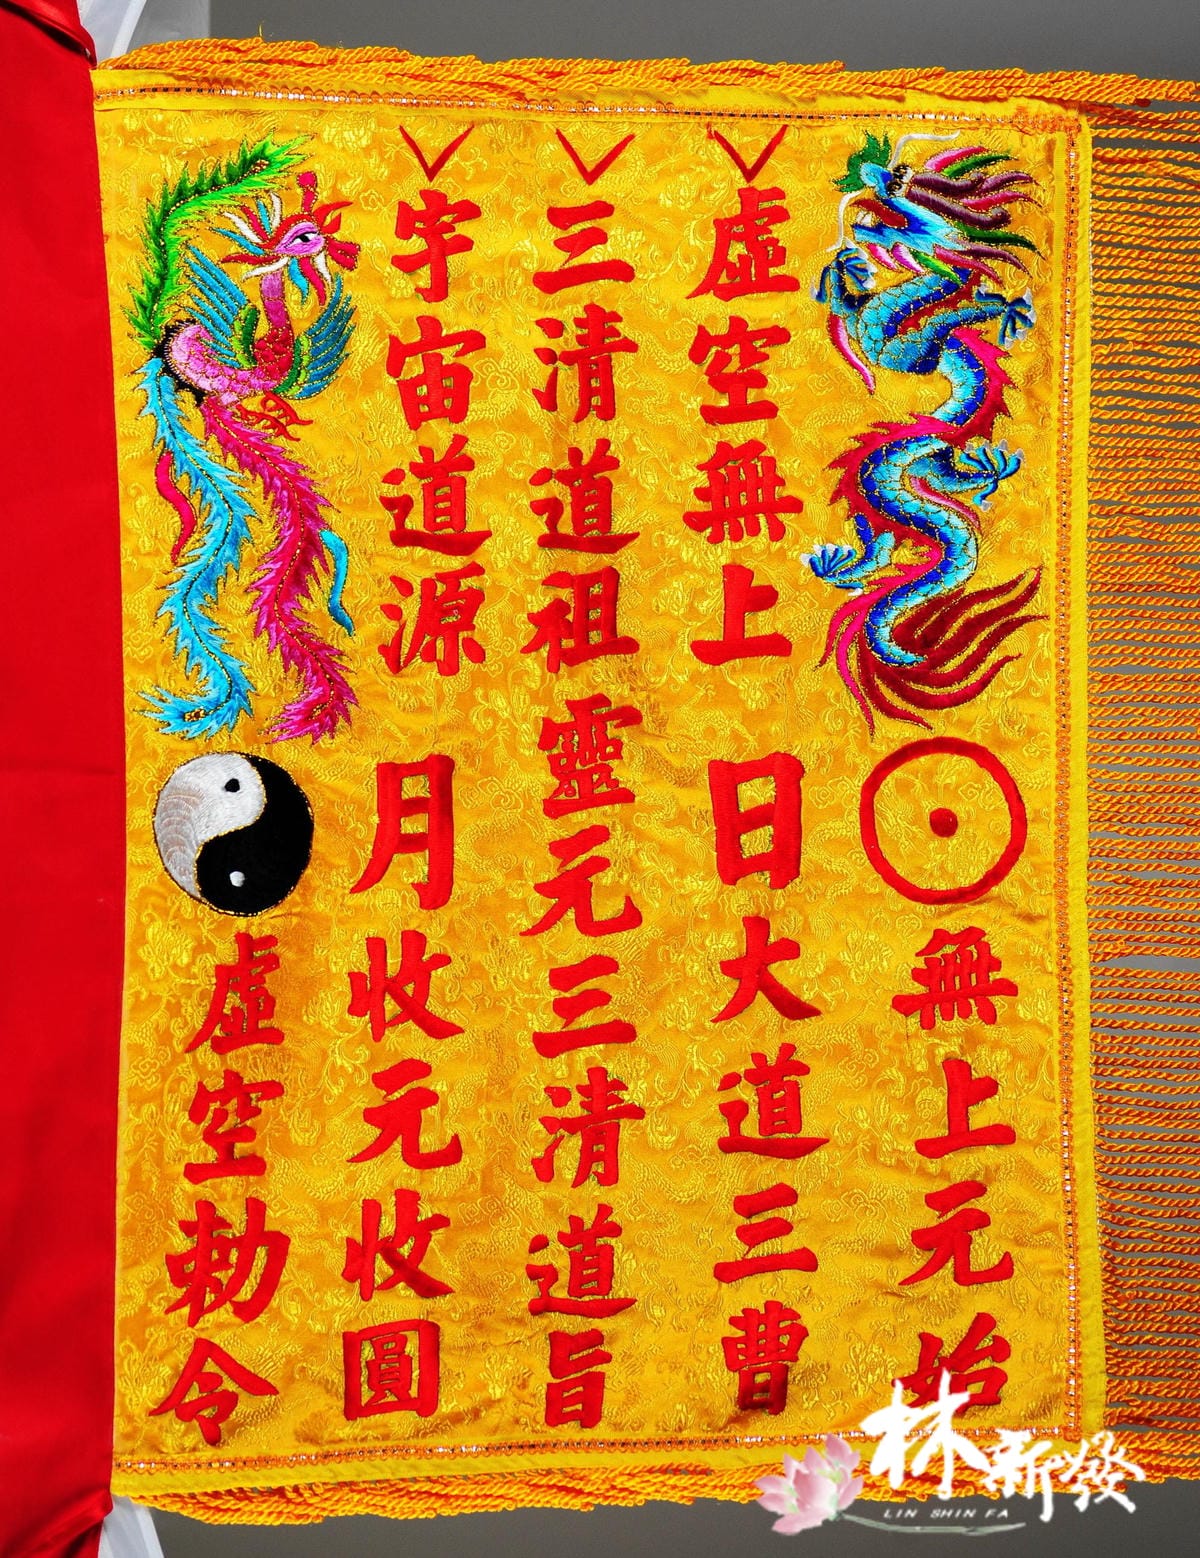 無上元始
虛空無上日大道三曹
三清道祖靈元三清道旨
宇宙道源月收元收圓
虛空勅令
林新發
LIN SHIN FA